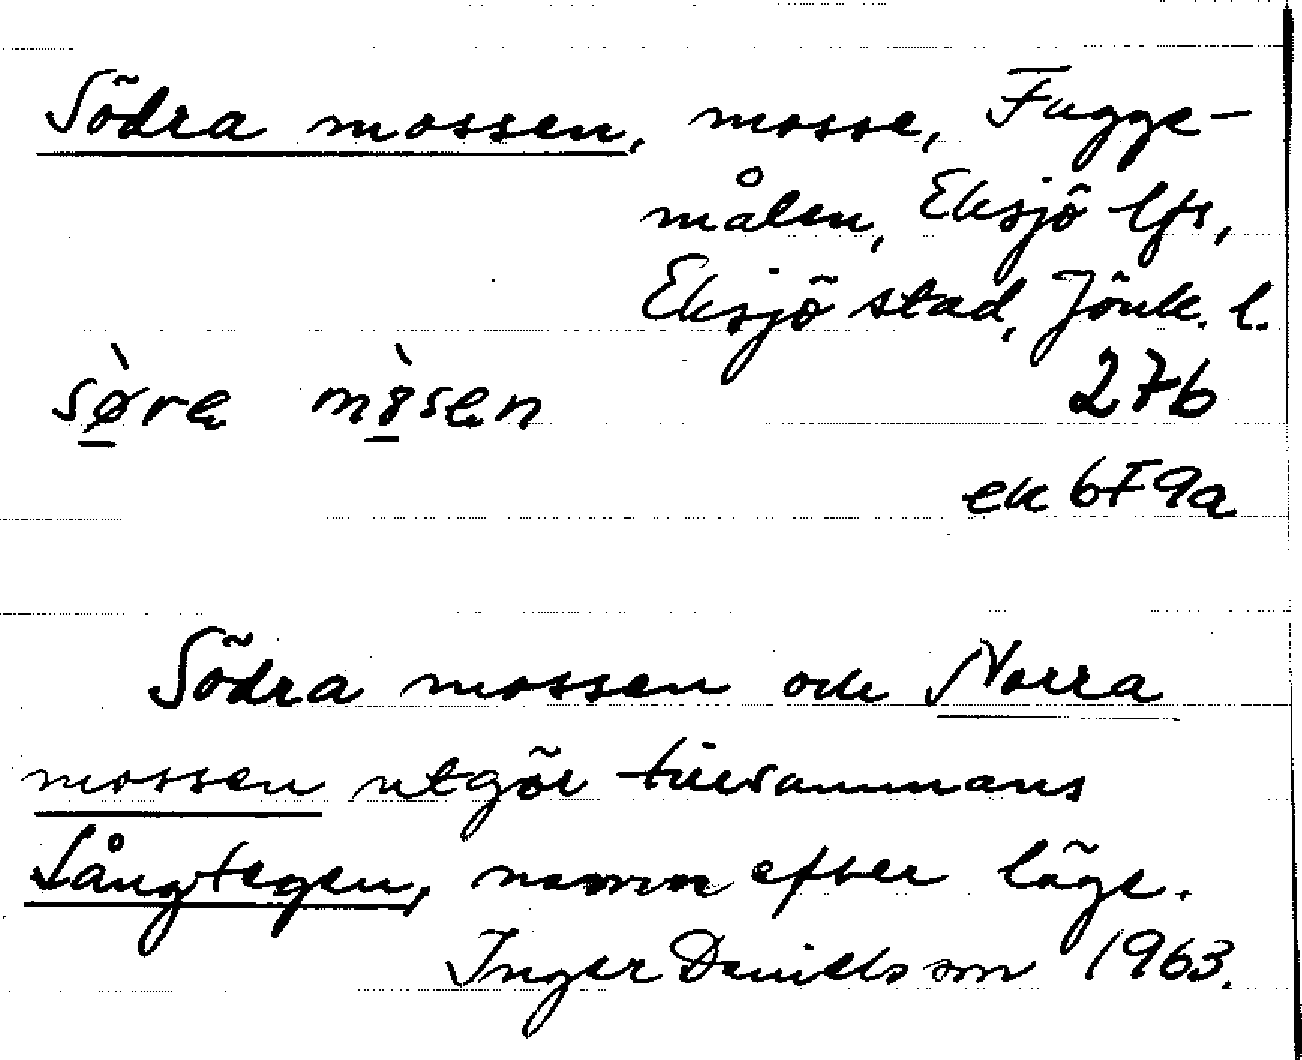 Södra mossen, mosse, Fugge-
målen, Eksjö lfs,
Eksjö stad, Jönk. l.
sø̱̀ra mò̱sen 27b
ek 6F9a
Södra mossen och Norra
mossen utgör tillsammans
Långtegen, namn efter läge.
Inger Danielsson 1963.